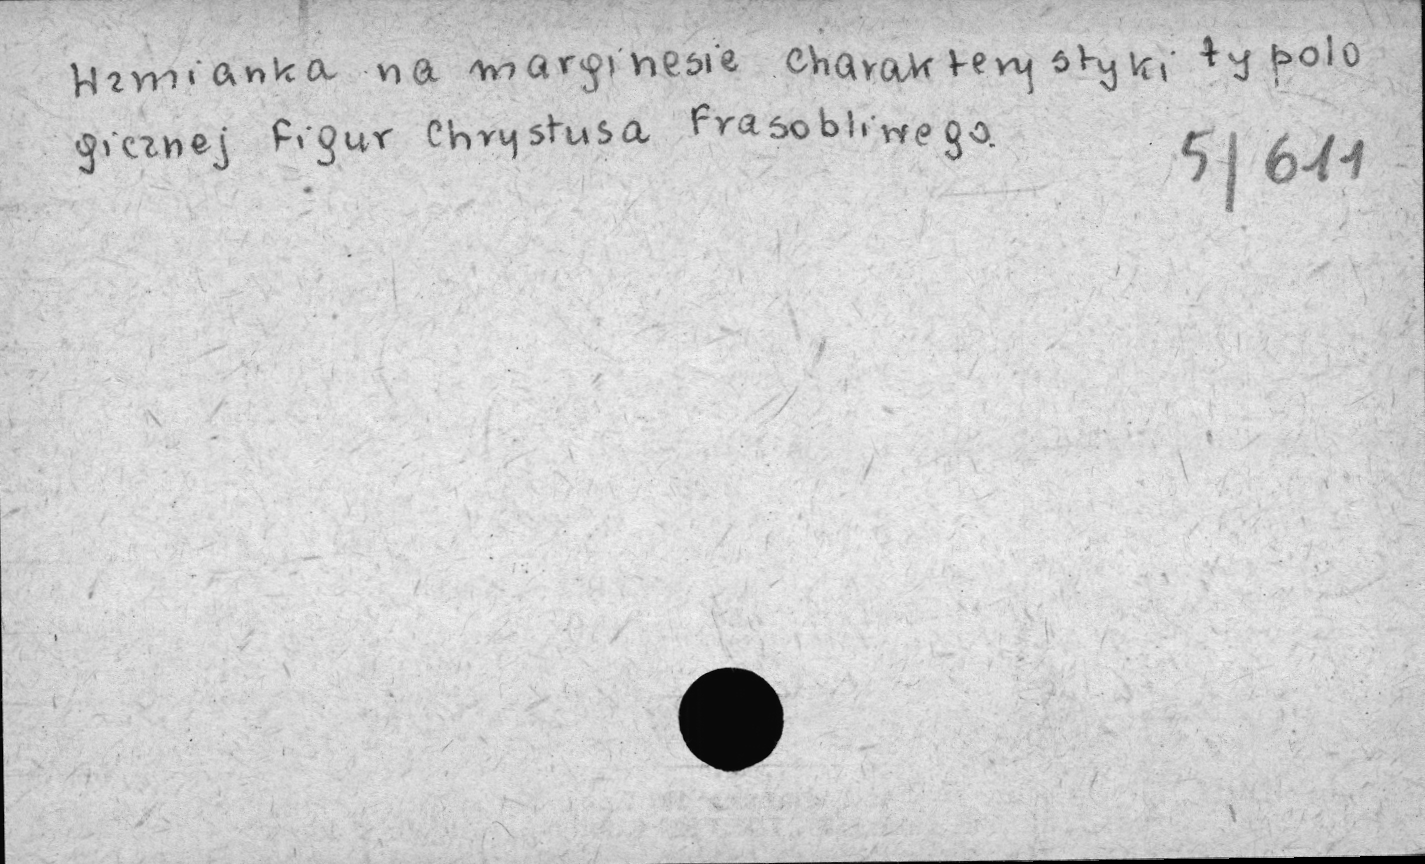 Wzmianka na marginesie charakterystyki typolo
gicznej figur Chrystusa Frasobliwego.
5/611